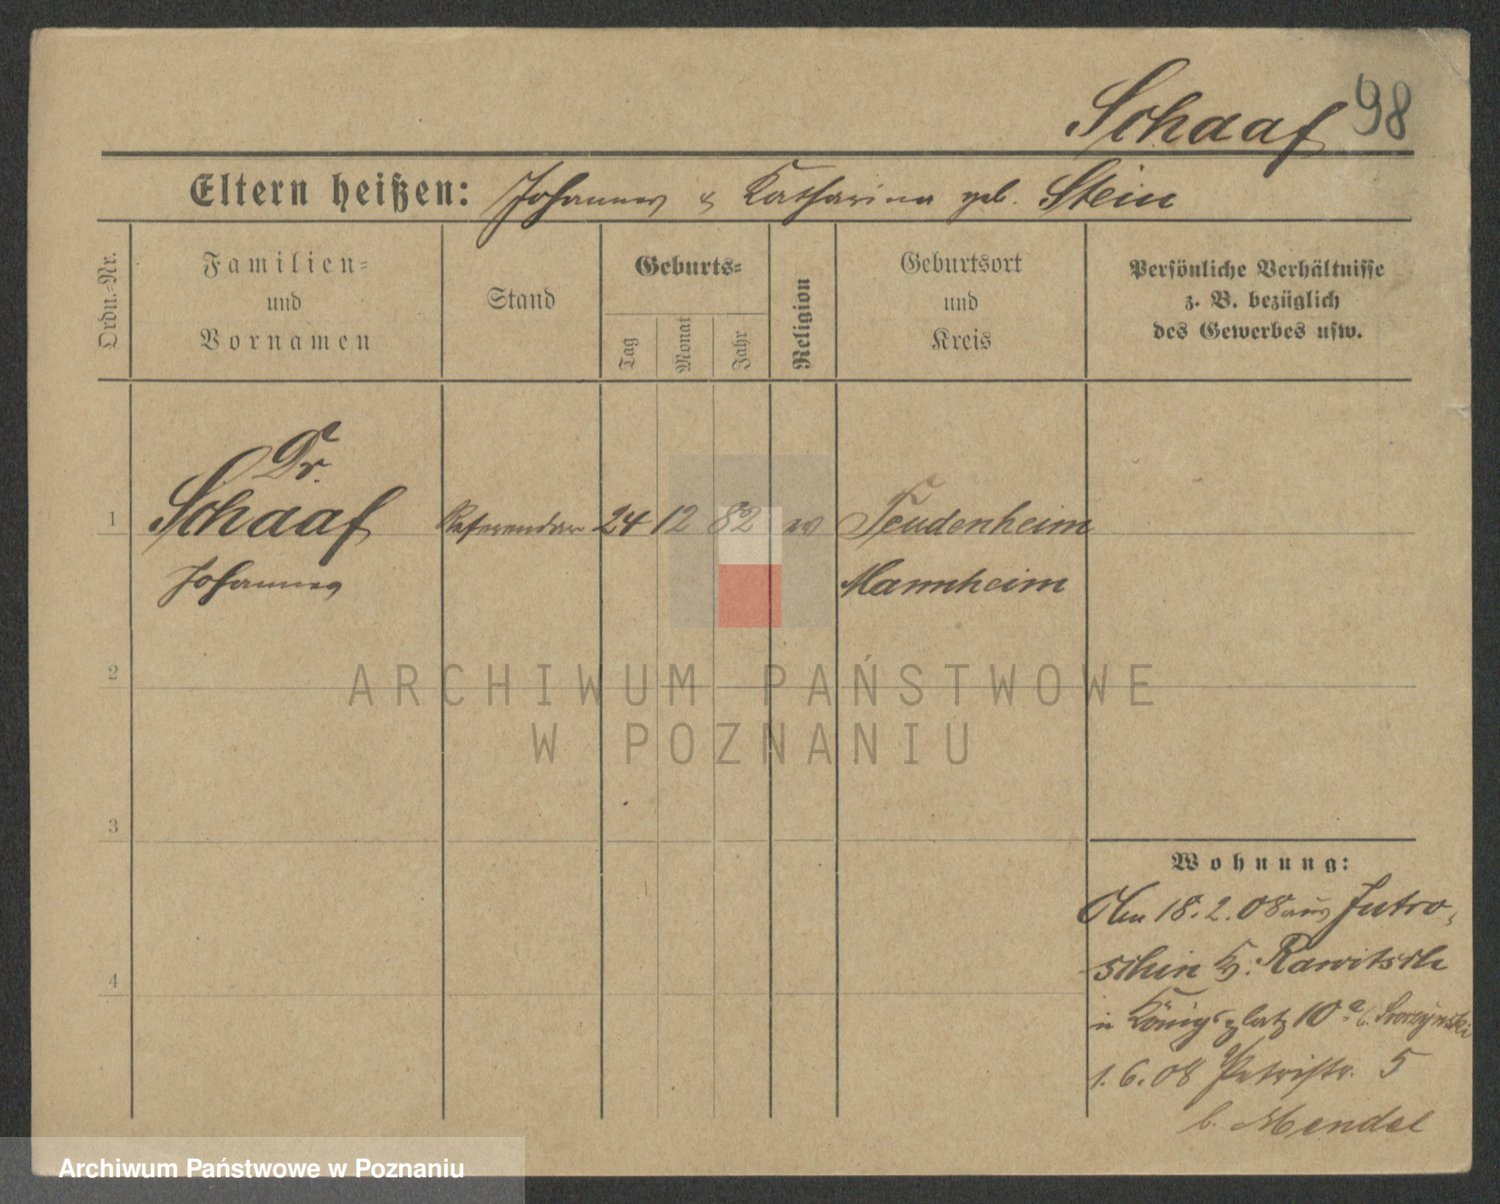 Schaaf 98
Eltern heißen: Johannes & Katharina geb. Stein
Ordn.-Nr.
Familien-
und
Vornamen
Stand
Geburts-
Tag
Monat
Jahr
Religion
Geburtsort
und
Kreis
Persönliche Verhältnisse
z. B. bezüglich
des Gewerbes usw.
Dr.
1 Schaaf Referendar 24 12 82 Feudenheim
Johannes Mannheim
2
ARCHIWUM PAŃSTWOWE
W POZNANIU
3
Wohnung:
Am 18.2.08 aus Jutro-
schin Kr. Rawitsch
4
in Königsplatz 10a b.
1.6.08 Petristr. 5
b. Mendel
Archiwum Państwowe w Poznaniu